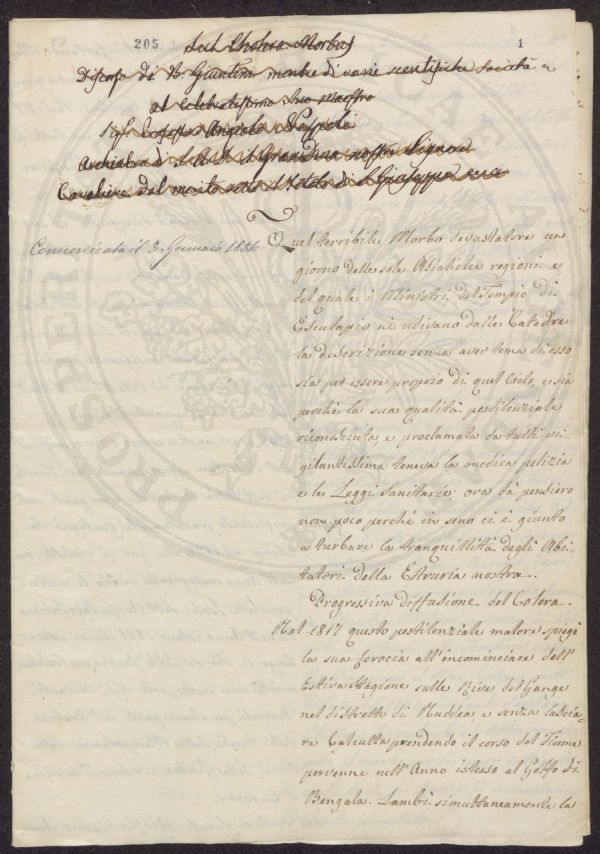 205
1
sul Cholera Morbus
Discorso di B. Giuntini membro di varie scientifiche società
al Celebratissimo Suo Maestro
Sig. Professor Angiolo
Archiatro di S. A. I. il Granduca nostro Signore
Cavaliere del merito sotto il titolo di S. Giuseppe
Comunicato il 3. Gennaio 1836
Quel terribile Morbo devastatore un
giorno delle sole Asiatiche regioni e
del quale i Ministri del Tempio di
Esculapio ne udivano dalle Catedre
la discrizione senza aver tema di esso
sia per essere proprio di quel Cielo, e sia
perché la sua qualità pestilenziale
riconosciuta, e proclamata da tutti vi-
gilantissima teneva la medica polizia
e le Leggi Sanitarie; ora dà pensiero
non poco perché in seno ci è giunto
a turbare la tranquillità degli Abi-
tatori della Etruria nostra.
Progressiva diffusione del Colera.
Nel 1817 questo pestilenziale malore spiegò
la sua ferocia all'incominciare dell'
Estiva Stagione sulle Rive del Gange
nel distretto di Nuddea e senza lascia-
re Calcutta prendendo il corso del Fiume
pervenne nell'Anno istesso al Golfo di
Bengala. Lambì simultaneamente la
PROSPER